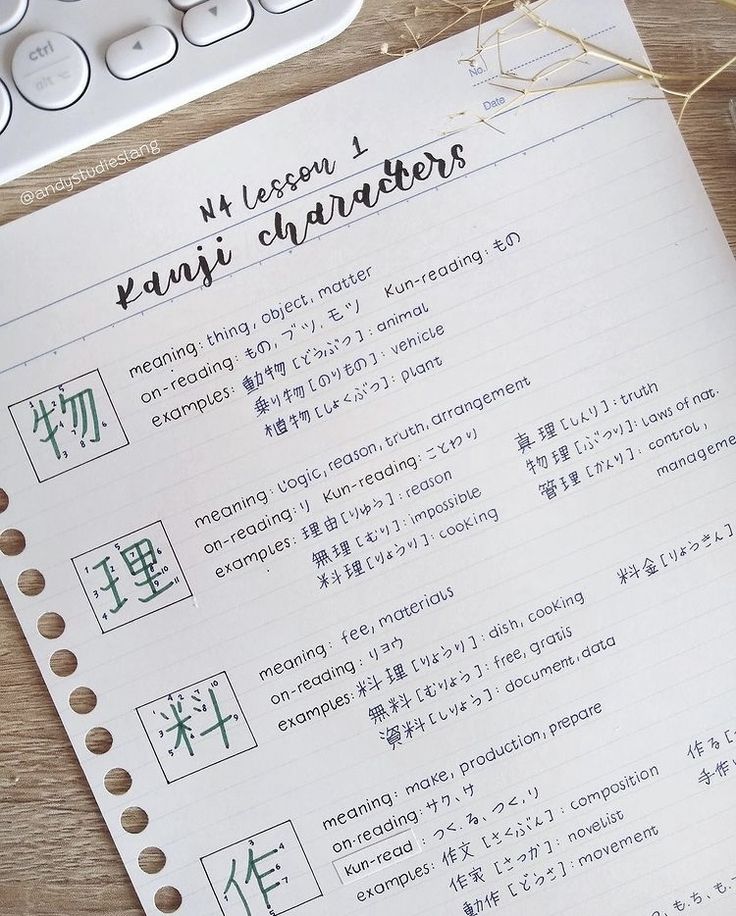 ctrl
alt
@andystudieslang
No.
Date
N4 lesson 1
Kanji characters
物
meaning: thing, object, matter
on-reading: もの, ブツ, モツ Kun-reading: もの
examples: 動物 [どうぶつ]: animal
乗り物 [のりもの]: vehicle
植物 [しょくぶつ]: plant
理
meaning: logic, reason, truth, arrangement
on-reading: リ Kun-reading: ことわり
examples: 理由 [りゆう]: reason
無理 [むり]: impossible
料理 [りょうり]: cooking
真理 [しんり]: truth
物理 [ぶつり]: laws of nat.
管理 [かんり]: control,
manageme
料
meaning: fee, materials
on-reading: リョウ
examples: 料理 [りょうり]: dish, cooking
無料 [むりょう]: free, gratis
資料 [しりょう]: document, data
料金 [りょうさん]
作
meaning: make, production, prepare
on-reading: サク、サ
Kun-read: つく.る、つく.り
examples: 作文 [さくぶん]: composition
作家 [さっか]: novelist
動作 [どうさ]: movement
作る
手作り